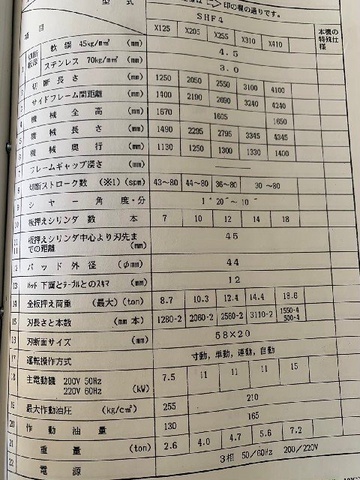 印の欄の通りです。
型式
SHF4
本機の特殊仕様
項目
X125 X205 X255 X310 X410
軟鋼 45kg/m㎡ (mm) 4.5
ステンレス 70kg/m㎡ (mm) 3.0
切断長さ (mm) 1250 2050 2550 3100 4100
サイドフレーム間距離 (mm) 1400 2190 2690 3240 4240
機械全高 (mm) 1570 1605 1650
機械長さ (mm) 1490 2295 2795 3345 4345
機械奥行 (mm) 1130 1250 1300 1330 1400
フレームギャップ深さ (mm)
切断ストローク数 (※1) (spm) 43~80 44~80 36~80 30~80
シャー角度・分 1°20~10
板押えシリンダ数 本 7 10 12 14 18
板押えシリンダ中心より刃先までの距離 (mm) 45
パッド外径 (φmm) 44
パット下面とテーブルとのスキマ (mm) 12
全板押え荷重 (最大) (ton) 8.7 10.3 12.4 14.4 18.6
刃長さと本数 (mm 本) 1280-2 2060-2 2560-2 3110-2 1550-4 500-4
刃断面サイズ (mm) 58×20
運転操作方式 寸動,単動,連動,自動
主電動機 200V 50Hz 220V 60Hz (kW) 7.5 11 11 11 15
最大作動油圧 (kg/c㎡) 255 210
作動油量 130 165
重量 (ton) 2.6 4.0 4.7 5.6 7.2
電源 3相 50/60Hz 200/220V